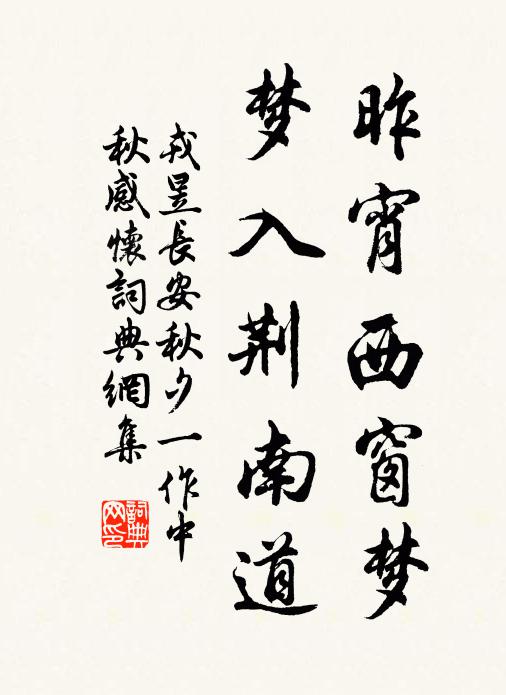 昨宵西窗梦
梦入荆南道
戎昱長安秋夕一作中
秋感懷詞典網集
詞典网印